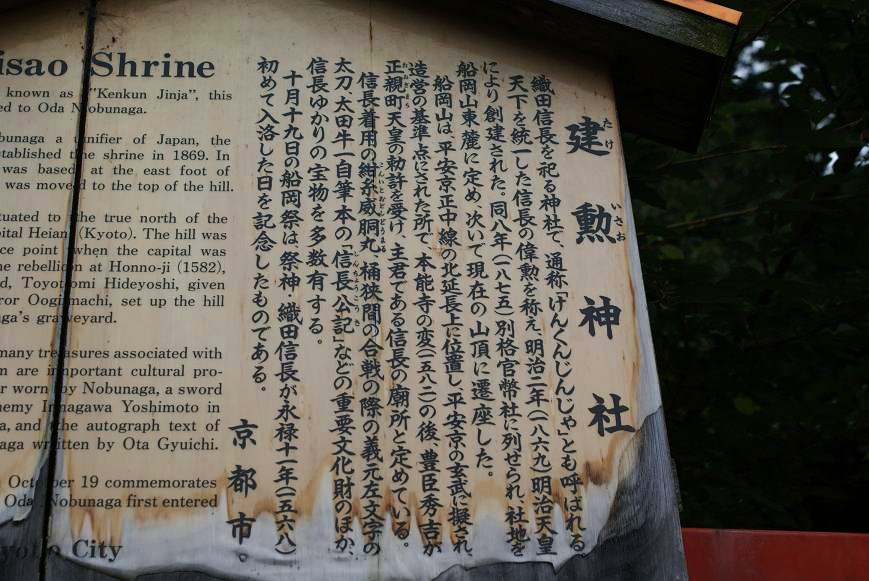 isao Shrine
known as "Kenkun Jinja", this
ed to Oda Nobunaga.
bunaga a unifier of Japan, the
stablished the shrine in 1869. In
was based at the east foot of
was moved to the top of the hill.
tuated to the true north of the
pital Heian (Kyoto). The hill was
ce point when the capital was
he rebellion at Honno-ji (1582),
d, Toyotomi Hideyoshi, given
ror Oogimachi, set up the hill
ga's graveyard.
many treasures associated with
m are important cultural pro-
r worn by Nobunaga, a sword
nemy Imagawa Yoshimoto in
a, and the autograph text of
aga written by Ota Gyuichi.
October 19 commemorates
Oda Nobunaga first entered
yoto City
建勲神社
たけ いさお
織田信長を祀る神社で、通称「げんくんじんじゃ」とも呼ばれる。
天下を統一した信長の偉勲を称え、明治二年(一八六九)明治天皇
により創建された。同八年(一八七五)別格官幣社に列せられ、社地を
船岡山東麓に定め、次いで現在の山頂に遷座した。
船岡山は、平安京正中線の北延長上に位置し、平安京の玄武に擬され、
造営の基準点にされた所で、本能寺の変(一五八二)の後、豊臣秀吉が
正親町天皇の勅許を受け、主君である信長の廟所と定めている。
信長着用の紺糸威胴丸、桶狭間の合戦の際の義元左文字の
太刀、太田牛一自筆本の「信長公記」などの重要文化財のほか、
信長ゆかりの宝物を多数有する。
十月十九日の船岡祭は、祭神・織田信長が永禄十一年(一五六八)
初めて入洛した日を記念したものである。
京都市。